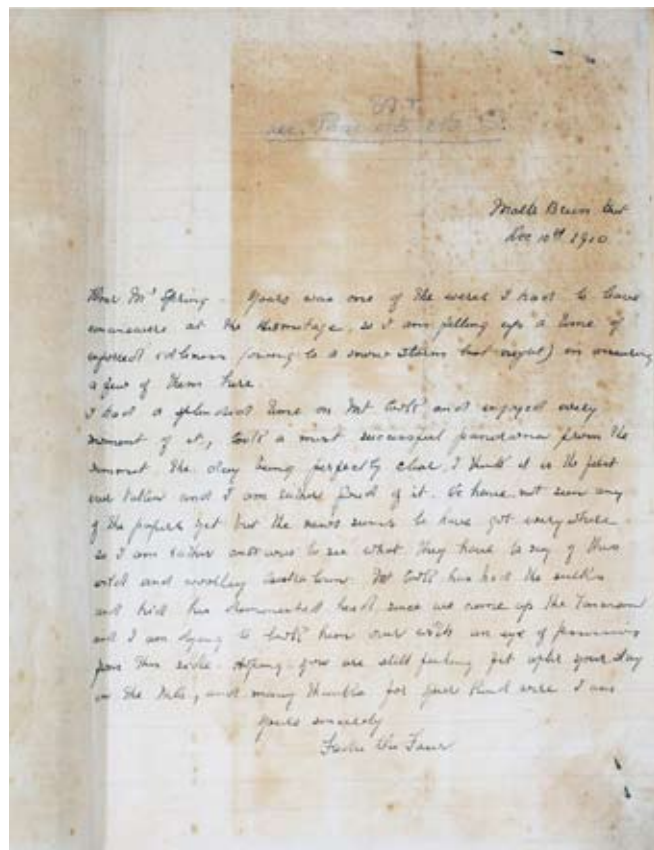 see Page
Malte Brun Hut
Dec 10th 1910
Dear Mr Spring. Yours was one of the wires I had to leave
unanswered at the Hermitage, so I am filling up a time of
enforced idleness (owing to a snow storm last night) in answering
a few of them here.
I had a splendid time on Mt Cook and enjoyed every
moment of it, took a most successful panorama from the
summit. The day being perfectly clear. I think it is the first
ever taken and I am rather proud of it. We have not seen any
of the papers yet but the news seems to have got everywhere
so I am rather anxious to see what they have to say of this
wild and woolley Australian. Mt Cook has had the sulks
and hid his diamented head since we came up the Tasman
and I am dying to look him over with an eye of
from this side. Hoping you are still feeling fit after your stay
in the hills, and many thanks for your kind wire I am
yours sincerely
Freda du Faur